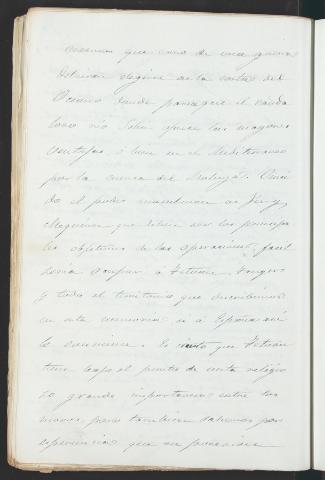 que caso de una guerra
debieran elegirse en la costa del
Oceano donde parece que el cauda
loso rio Sebú ofrece las mayores
ventajas o bien en el Mediterraneo
por la cuenca del Muluya.
do el poder musulman en Fez y
Mequinez que deben ser los principa
les objetivos de las operaciones, facil
seria ocupar a Tetuan, Tanger
y todo el territorio que describimos
en esta memoria si a España
le conviene. Es cierto que Tetuan
tiene bajo el punto de vista religio
so grande importancia entre los
moros, pero tambien sabemos por
esperiencia que su posesion